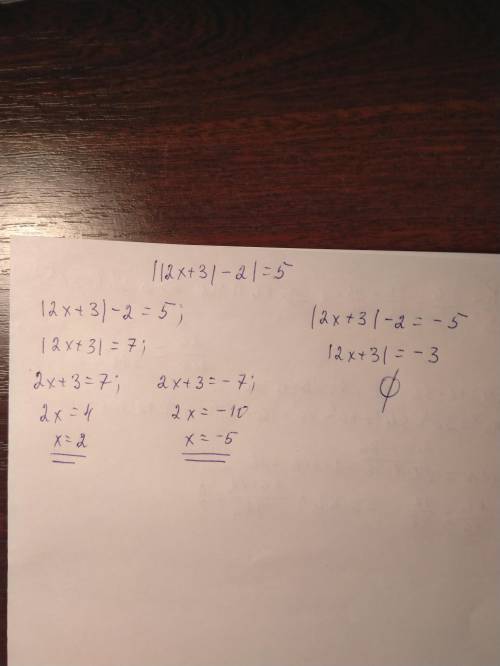 ||2x+3|-2|=5
|2x+3|-2=5;
|2x+3|=7;
2x+3=7; 2x+3=-7;
2x=4 2x=-10
x=2 x=-5
|2x+3|-2=-5
|2x+3|=-3
∅